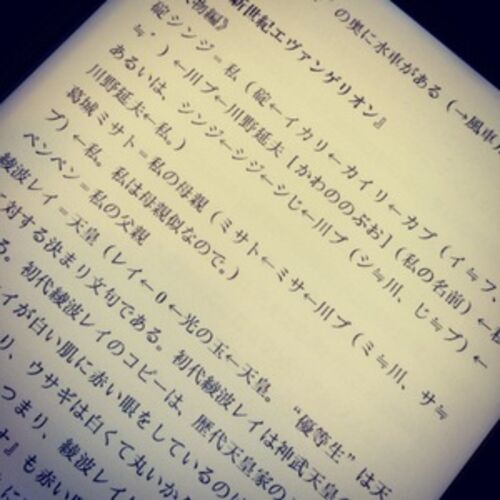 の奥に水車がある(→風車
新世紀エヴァンゲリオン』
物編》
碇シンジ=私(碇←イカリ←カイリ←カブ(イ≒フ、
≒・)←川ブ←川野延夫[かわののぶお](私の名前)←私
あるいは、シンジ←シジ←シじ←川ブ(シ≒川、じ≒ブ)←
川野延夫←私。)
葛城ミサト=私の母親(ミサト←ミサ←川ブ(ミ≒川、サ≒
ブ)←私。私は母親似なので。)
ペンペン=私の父親
綾波レイ=天皇(レイ←0←光の玉←天皇。“優等生”は天
に対する決まり文句である。初代綾波レイは神武天皇
る。初代綾波レイのコピーは、歴代天皇家の
イが白い肌に赤い眼をしているの
り、ウサギは白くて丸いから
つまり、綾波レイ
ナ』も赤い